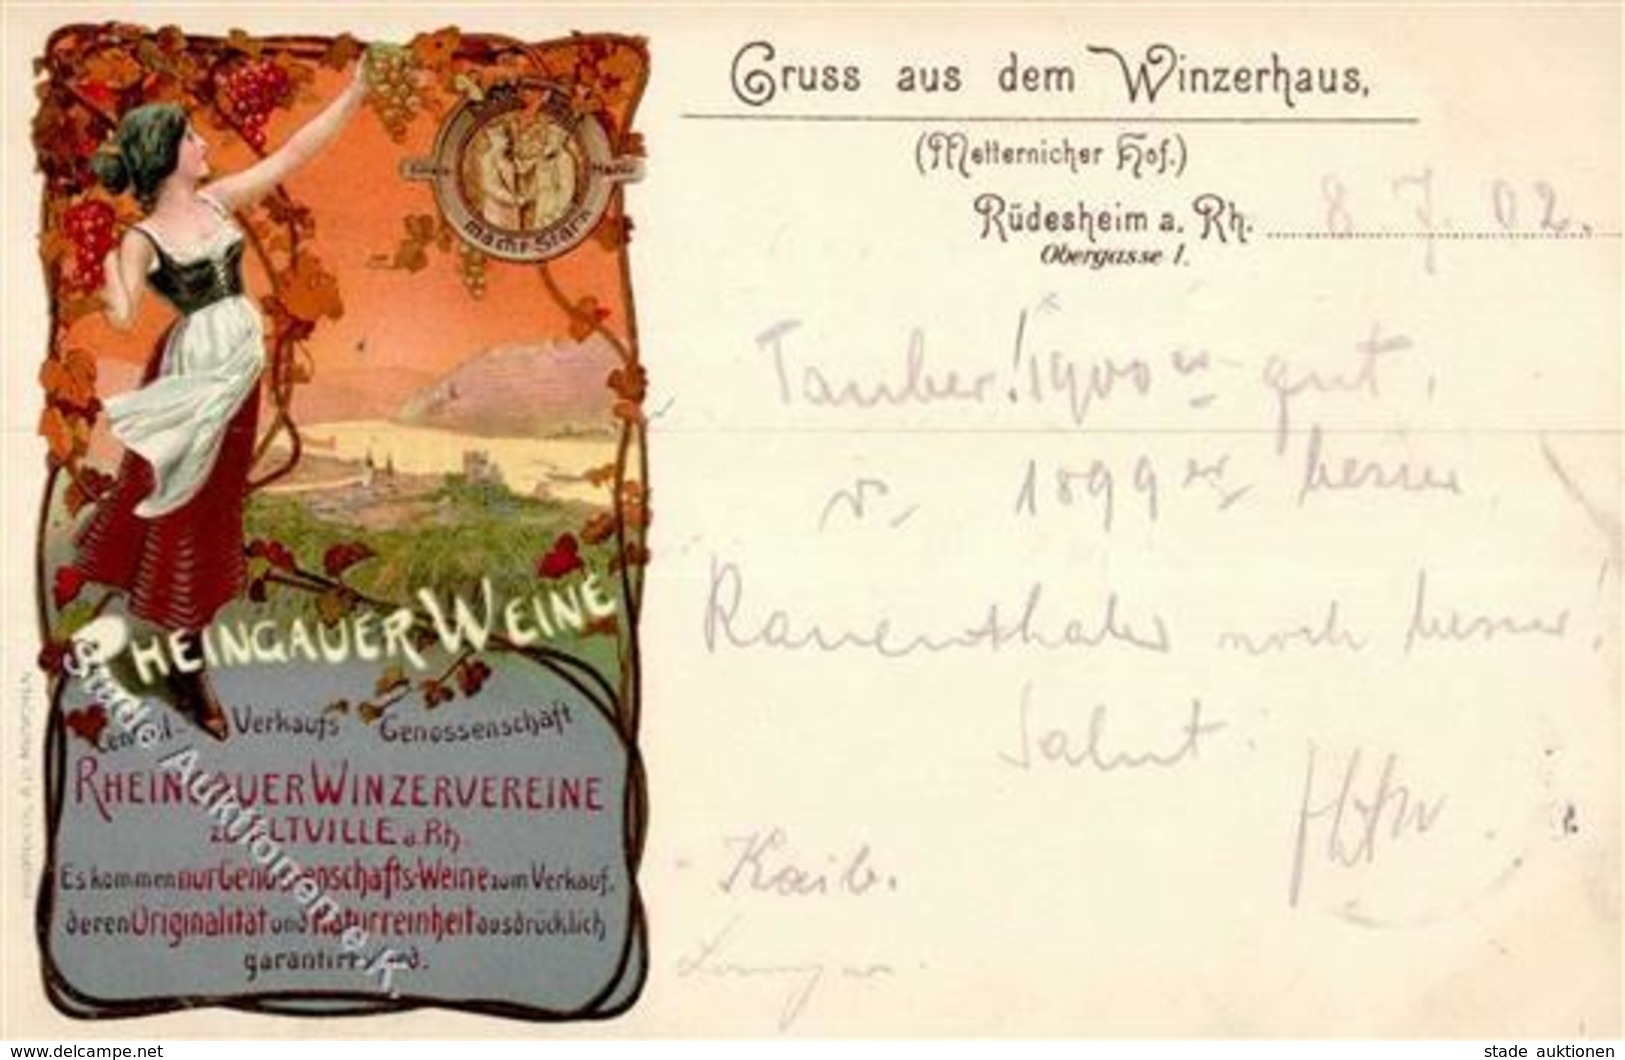 Gruss aus dem Winzerhaus,
(Metternicher Hof.)
Rüdesheim a. Rh. 8. 7. 02.
Obergasse 1.
Tauber! 1900er gut,
1899er besser,
Rauenthaler noch besser!
Salut.
Kaib.
Einig Macht Stark
RHEINGAUER WEINE
Central-Verkaufs Genossenschaft
RHEINGAUER WINZERVEREINE
zu ELTVILLE a. Rh.
Es kommen nur Genossenschafts-Weine zum Verkauf,
deren Originalität und Naturreinheit ausdrücklich
garantirt wird.
Stade Auktionen e.K.
www.delcampe.net
stade auktionen